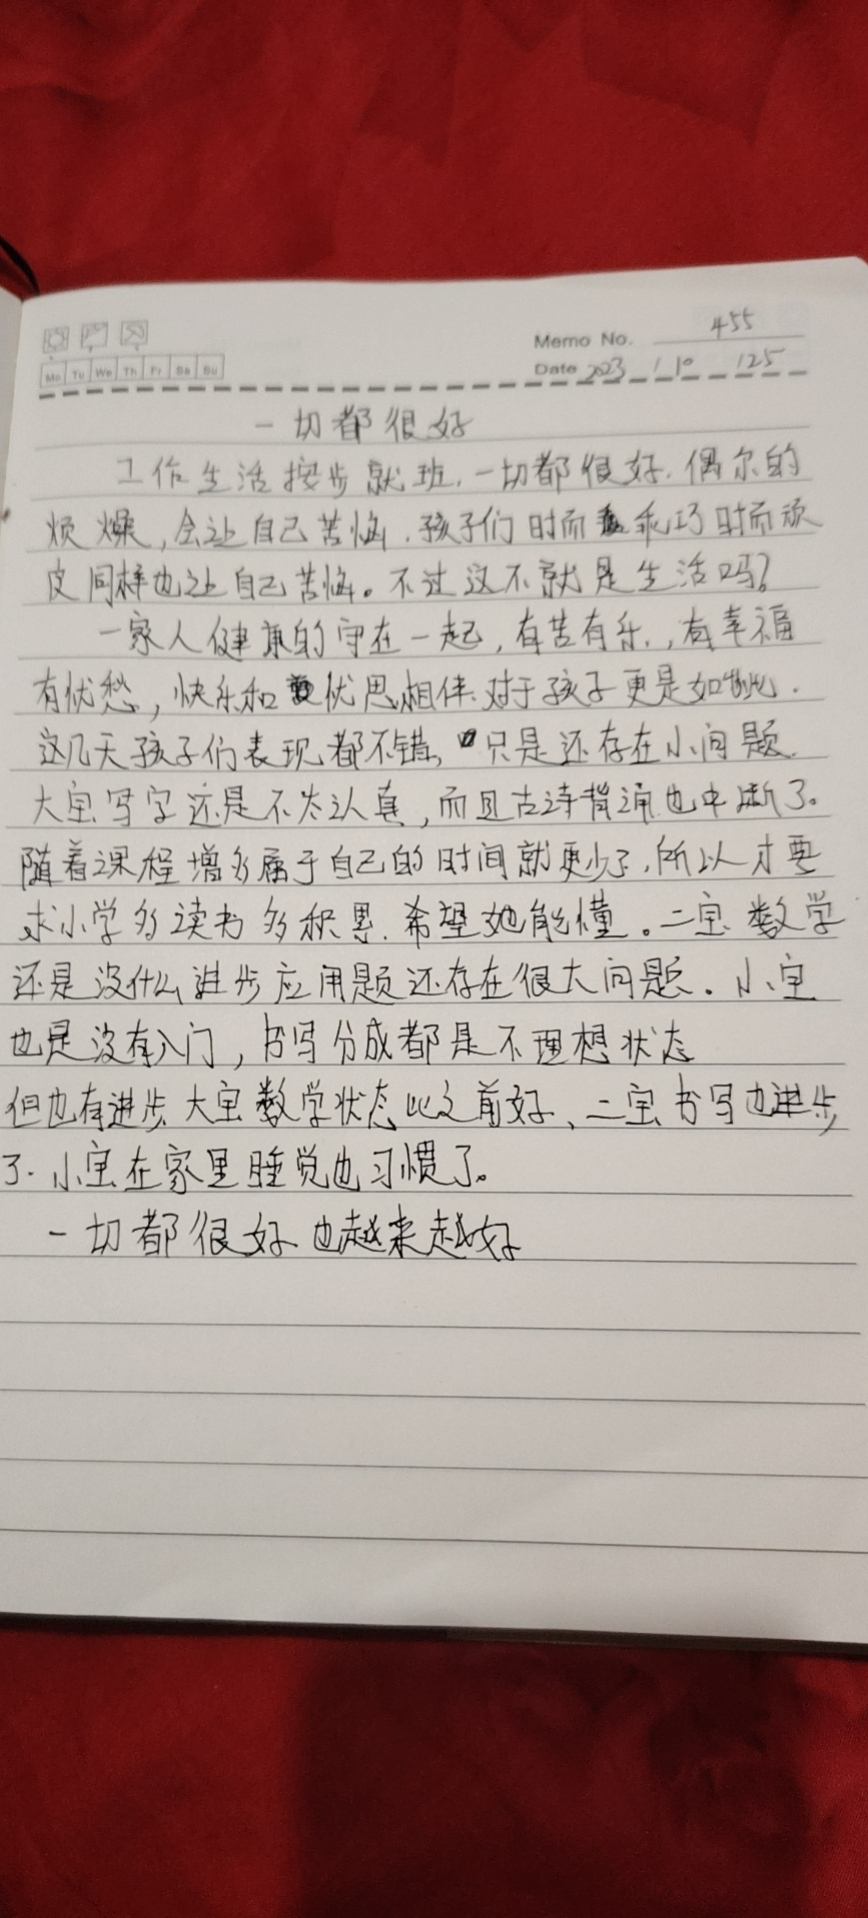 Memo No. 455
Mo Tu We Th Fr Sa Su
Date 2023 / 10 / 25
一切都很好
工作生活按步就班,一切都很好.偶尔的
烦燥,会让自己苦恼.孩子们时而乖巧时而顽
皮同样也让自己苦恼。不过这不就是生活吗?
一家人健康的守在一起,有苦有乐,有幸福
有忧愁,快乐和忧思相伴.对于孩子更是如此.
这几天孩子们表现都不错,只是还存在小问题.
大宝写字还是不太认真,而且古诗背诵也中断了。
随着课程增多属于自己的时间就更少了,所以才要
求小学多读书多积累.希望她能懂。二宝数学
还是没什么进步应用题还存在很大问题.小宝
也是没有入门,书写分成都是不理想状态
但也有进步.大宝数学状态比之前好、二宝书写也进步
了.小宝在家里睡觉也习惯了。
一切都很好也越来越好